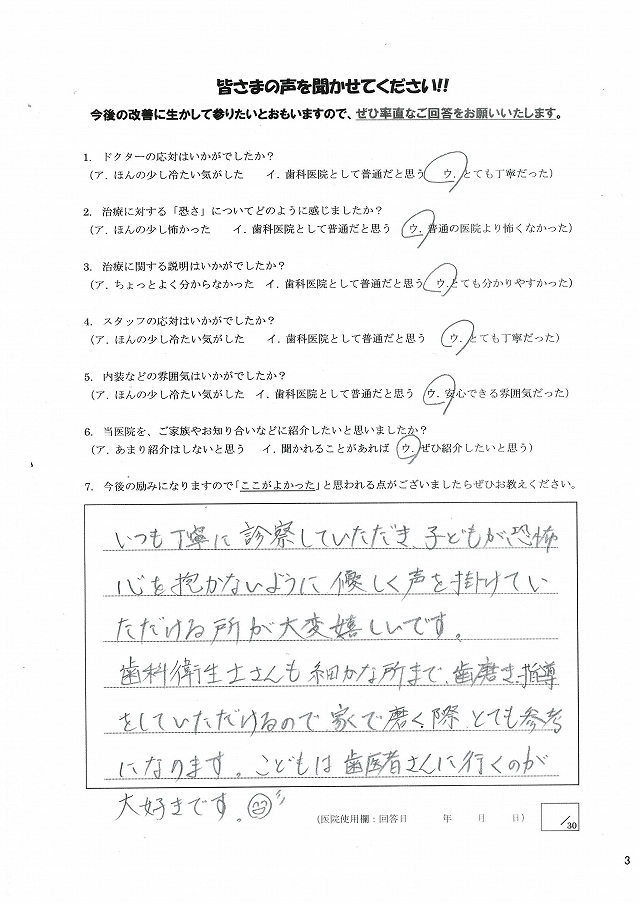 皆さまの声を聞かせてください!!
今後の改善に生かして参りたいとおもいますので、ぜひ率直なご回答をお願いいたします。
1. ドクターの応対はいかがでしたか？
（ア．ほんの少し冷たい気がした　イ．歯科医院として普通だと思う　ウ．とても丁寧だった）
2. 治療に対する「恐さ」についてどのように感じましたか？
（ア．ほんの少し怖かった　イ．歯科医院として普通だと思う　ウ．普通の医院より怖くなかった）
3. 治療に関する説明はいかがでしたか？
（ア．ちょっとよく分からなかった　イ．歯科医院として普通だと思う　ウ．とても分かりやすかった）
4. スタッフの応対はいかがでしたか？
（ア．ほんの少し冷たい気がした　イ．歯科医院として普通だと思う　ウ．とても丁寧だった）
5. 内装などの雰囲気はいかがでしたか？
（ア．ほんの少し冷たい気がした　イ．歯科医院として普通だと思う　ウ．安心できる雰囲気だった）
6. 当医院を、ご家族やお知り合いなどに紹介したいと思いましたか？
（ア．あまり紹介はしないと思う　イ．聞かれることがあれば　ウ．ぜひ紹介したいと思う）
7. 今後の励みになりますので「ここがよかった」と思われる点がございましたらぜひお教えください。
いつも丁寧に診察していただき、子どもが恐怖
心を抱かないように優しく声を掛けてい
ただける所が大変嬉しいです。
歯科衛生士さんも細かな所まで、歯磨き指導
をしていただけるので家で磨く際とても参考
になります。こどもは歯医者さんに行くのが
大好きです。
（医院使用欄：回答日　年　月　日）　／30
3